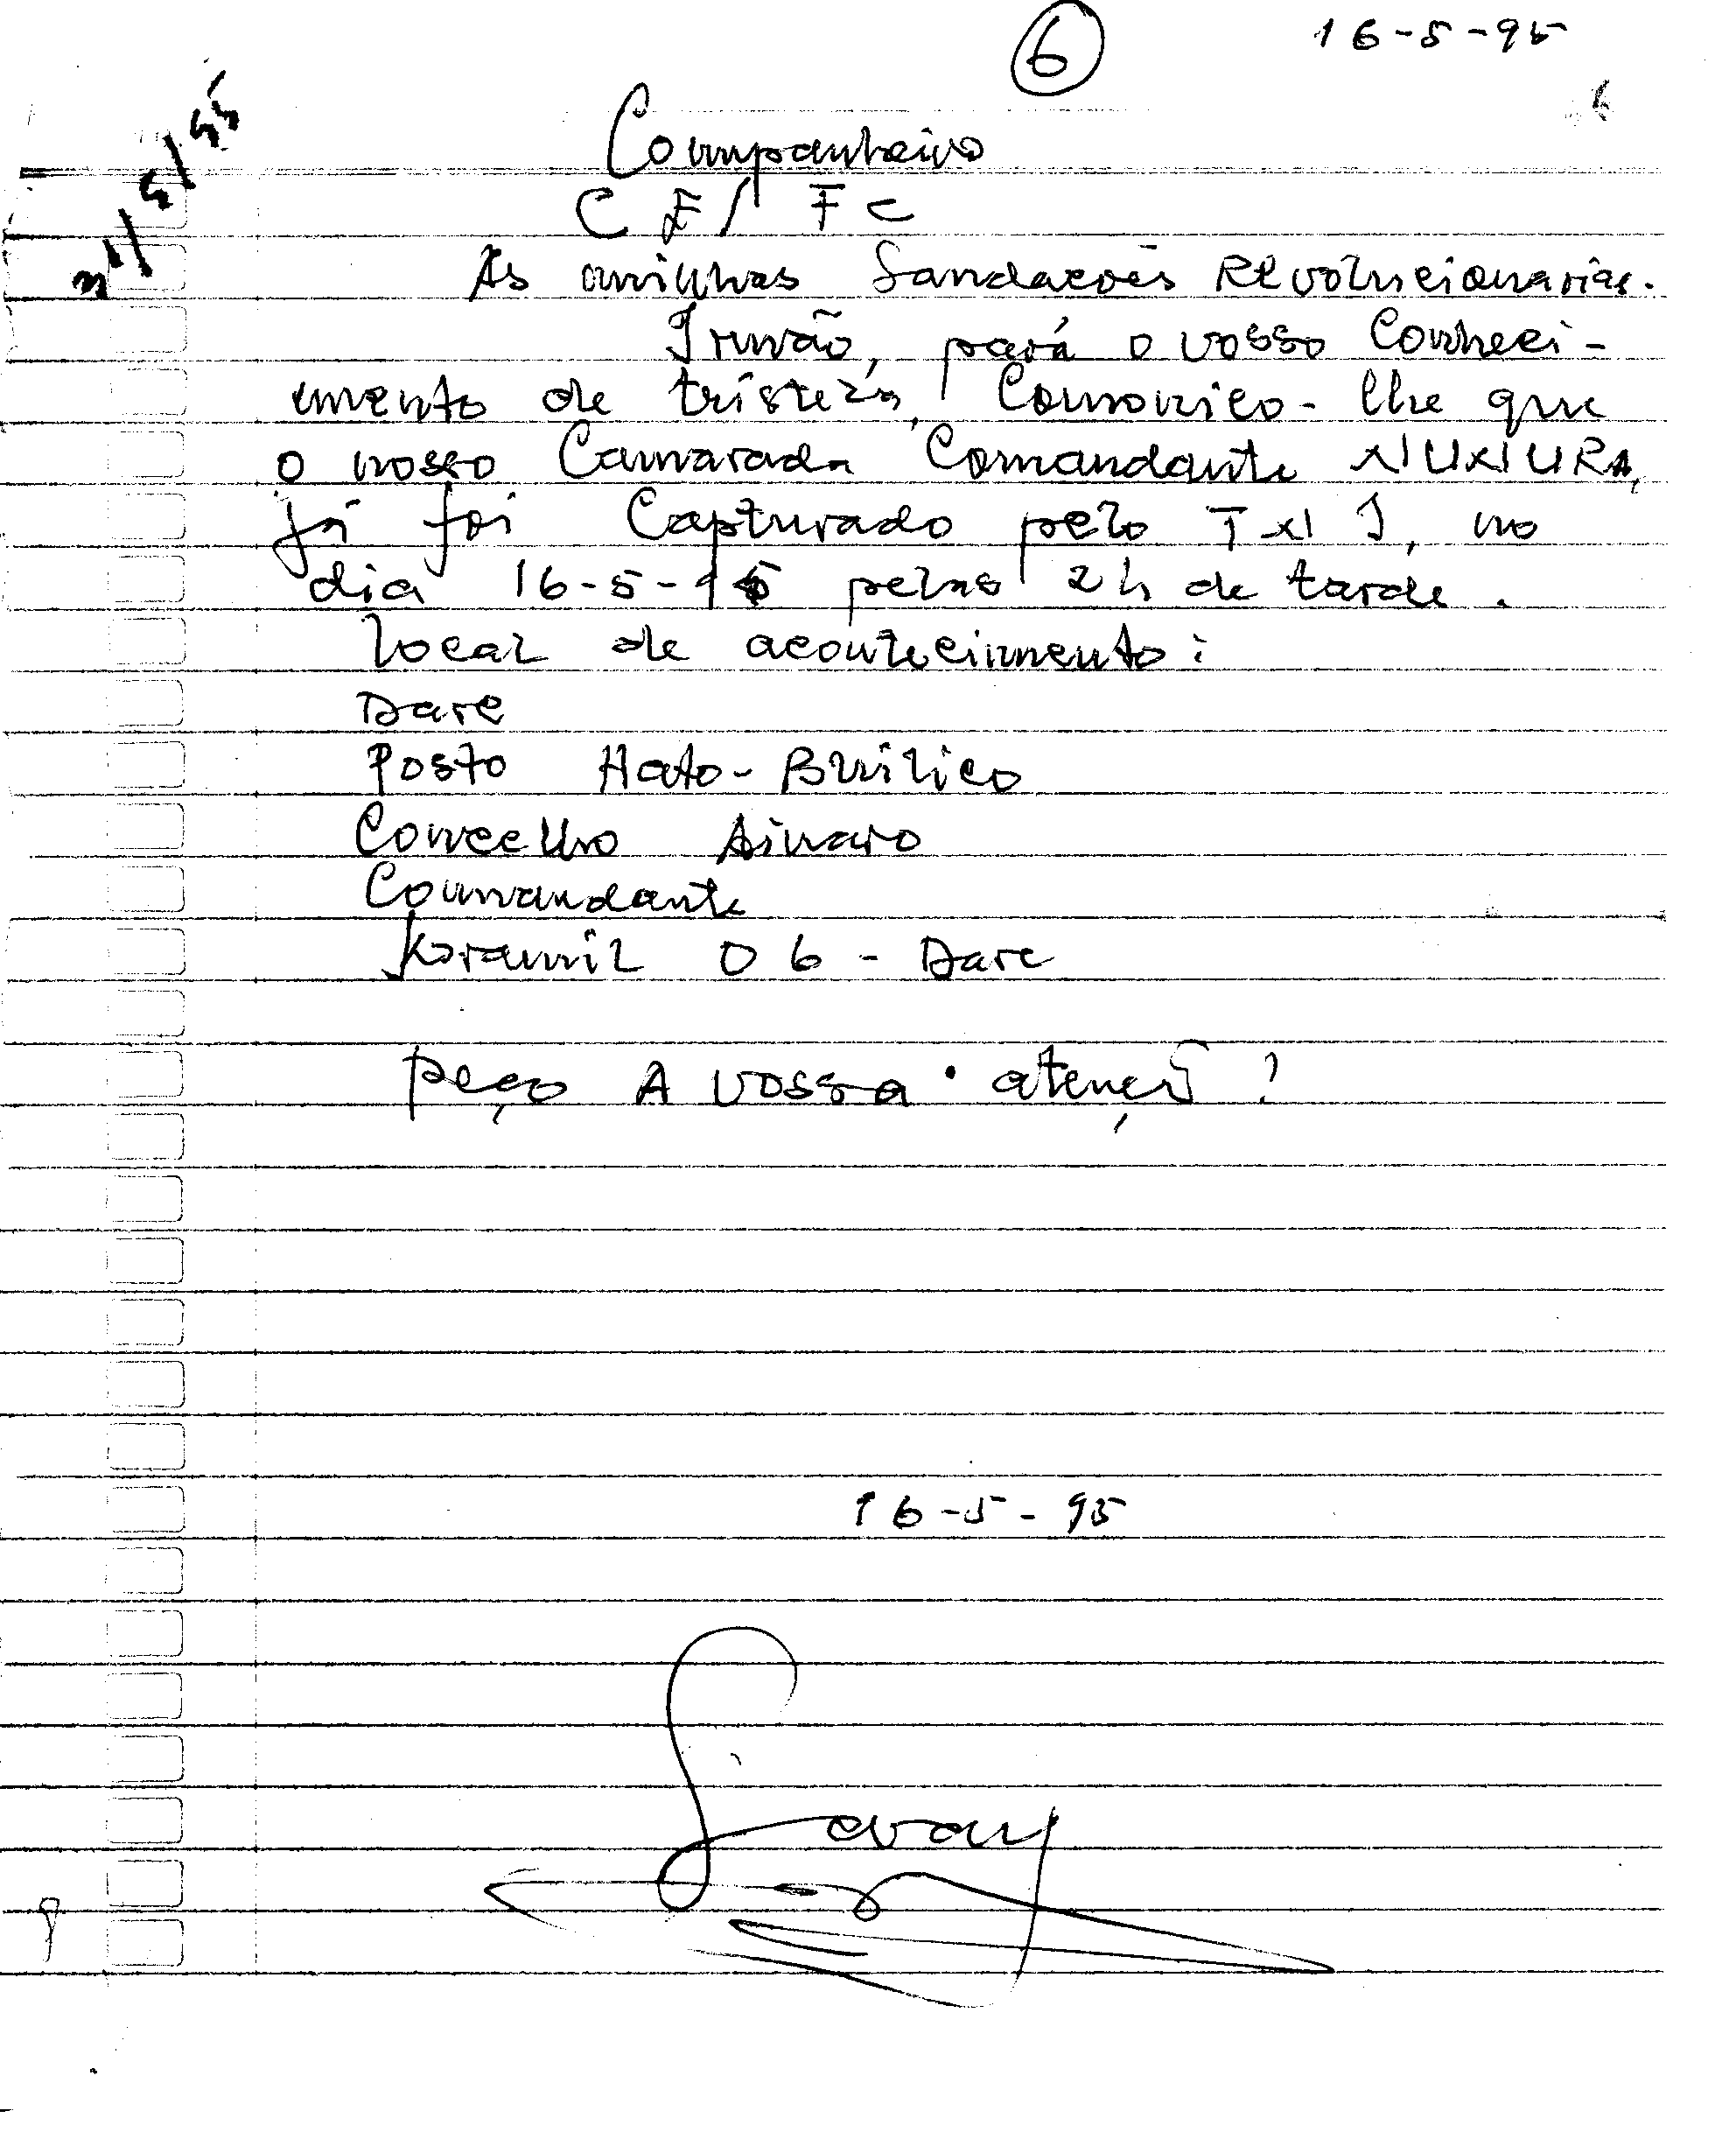 6
16-5-95
21/5/95
Companheiro
CE/FC
As minhas Saudacões Revolucionarias.
Irmão, pará o vosso Conheci-
mento de tristeza, Comonico-lhe que
o nosso Camarada Comandante NUNURA,
já foi Capturado pelo TNI, no
dia 16-5-95 pelas 2h de tarde.
local de acontecimento:
Dare
Posto Hato-Builico
Concelho Ainaro
Comandante
Koramil 06 - Dare
Peço A vossa atenção?
16-5-95